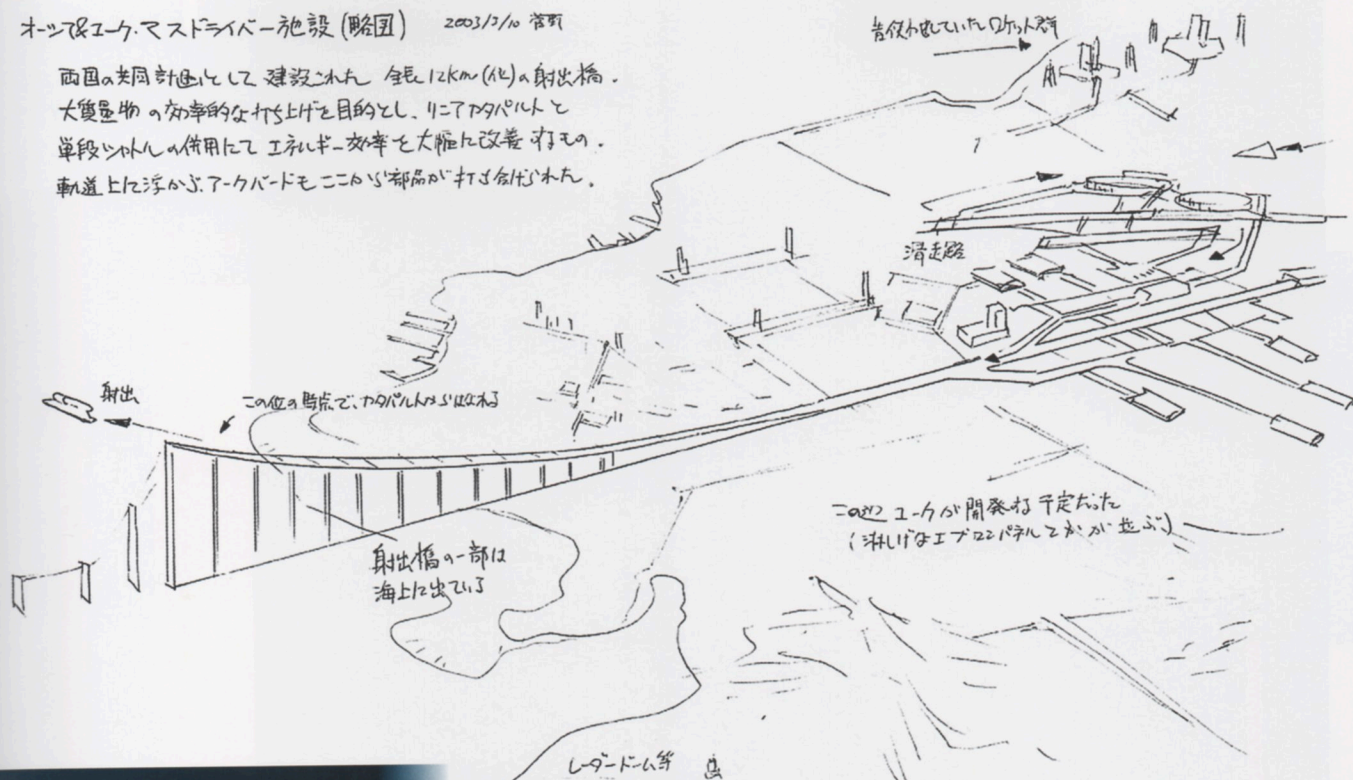 オーシア&ユーク・マスドライバー施設(略図) 2003/2/10 菅野
両国の共同計画として建設された 全長12km(位)の射出橋.
大質量物の効率的な打ち上げを目的とし、リニアカタパルトと
単段シャトルの併用にて エネルギー効率を大幅に改善するもの.
軌道上に浮かぶ、アークバードもここから部品が打ち上げられた.
昔使われていたロケット群
滑走路
射出
この位の時点で、カタパルトからはなれる
射出橋の一部は
海上に出ている
この辺 ユークが開発する予定だった
(淋しげなエプロンパネルとかが並ぶ)
レーダードーム等